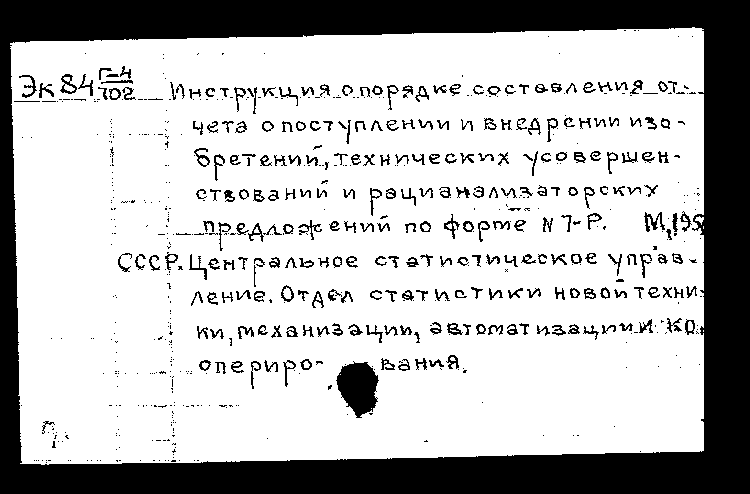 Эк 84 Г-4/102 Инструкция о порядке составления от-
чета о поступлении и внедрении изо-
бретений, технических усовершен-
ствований и рационализаторских
предложений по форме N 7-Р. М, 195
СССР. Центральное статистическое управ-
ление. Отдел статистики новой техни-
ки, механизации, автоматизации и ко-
опериро- вания.